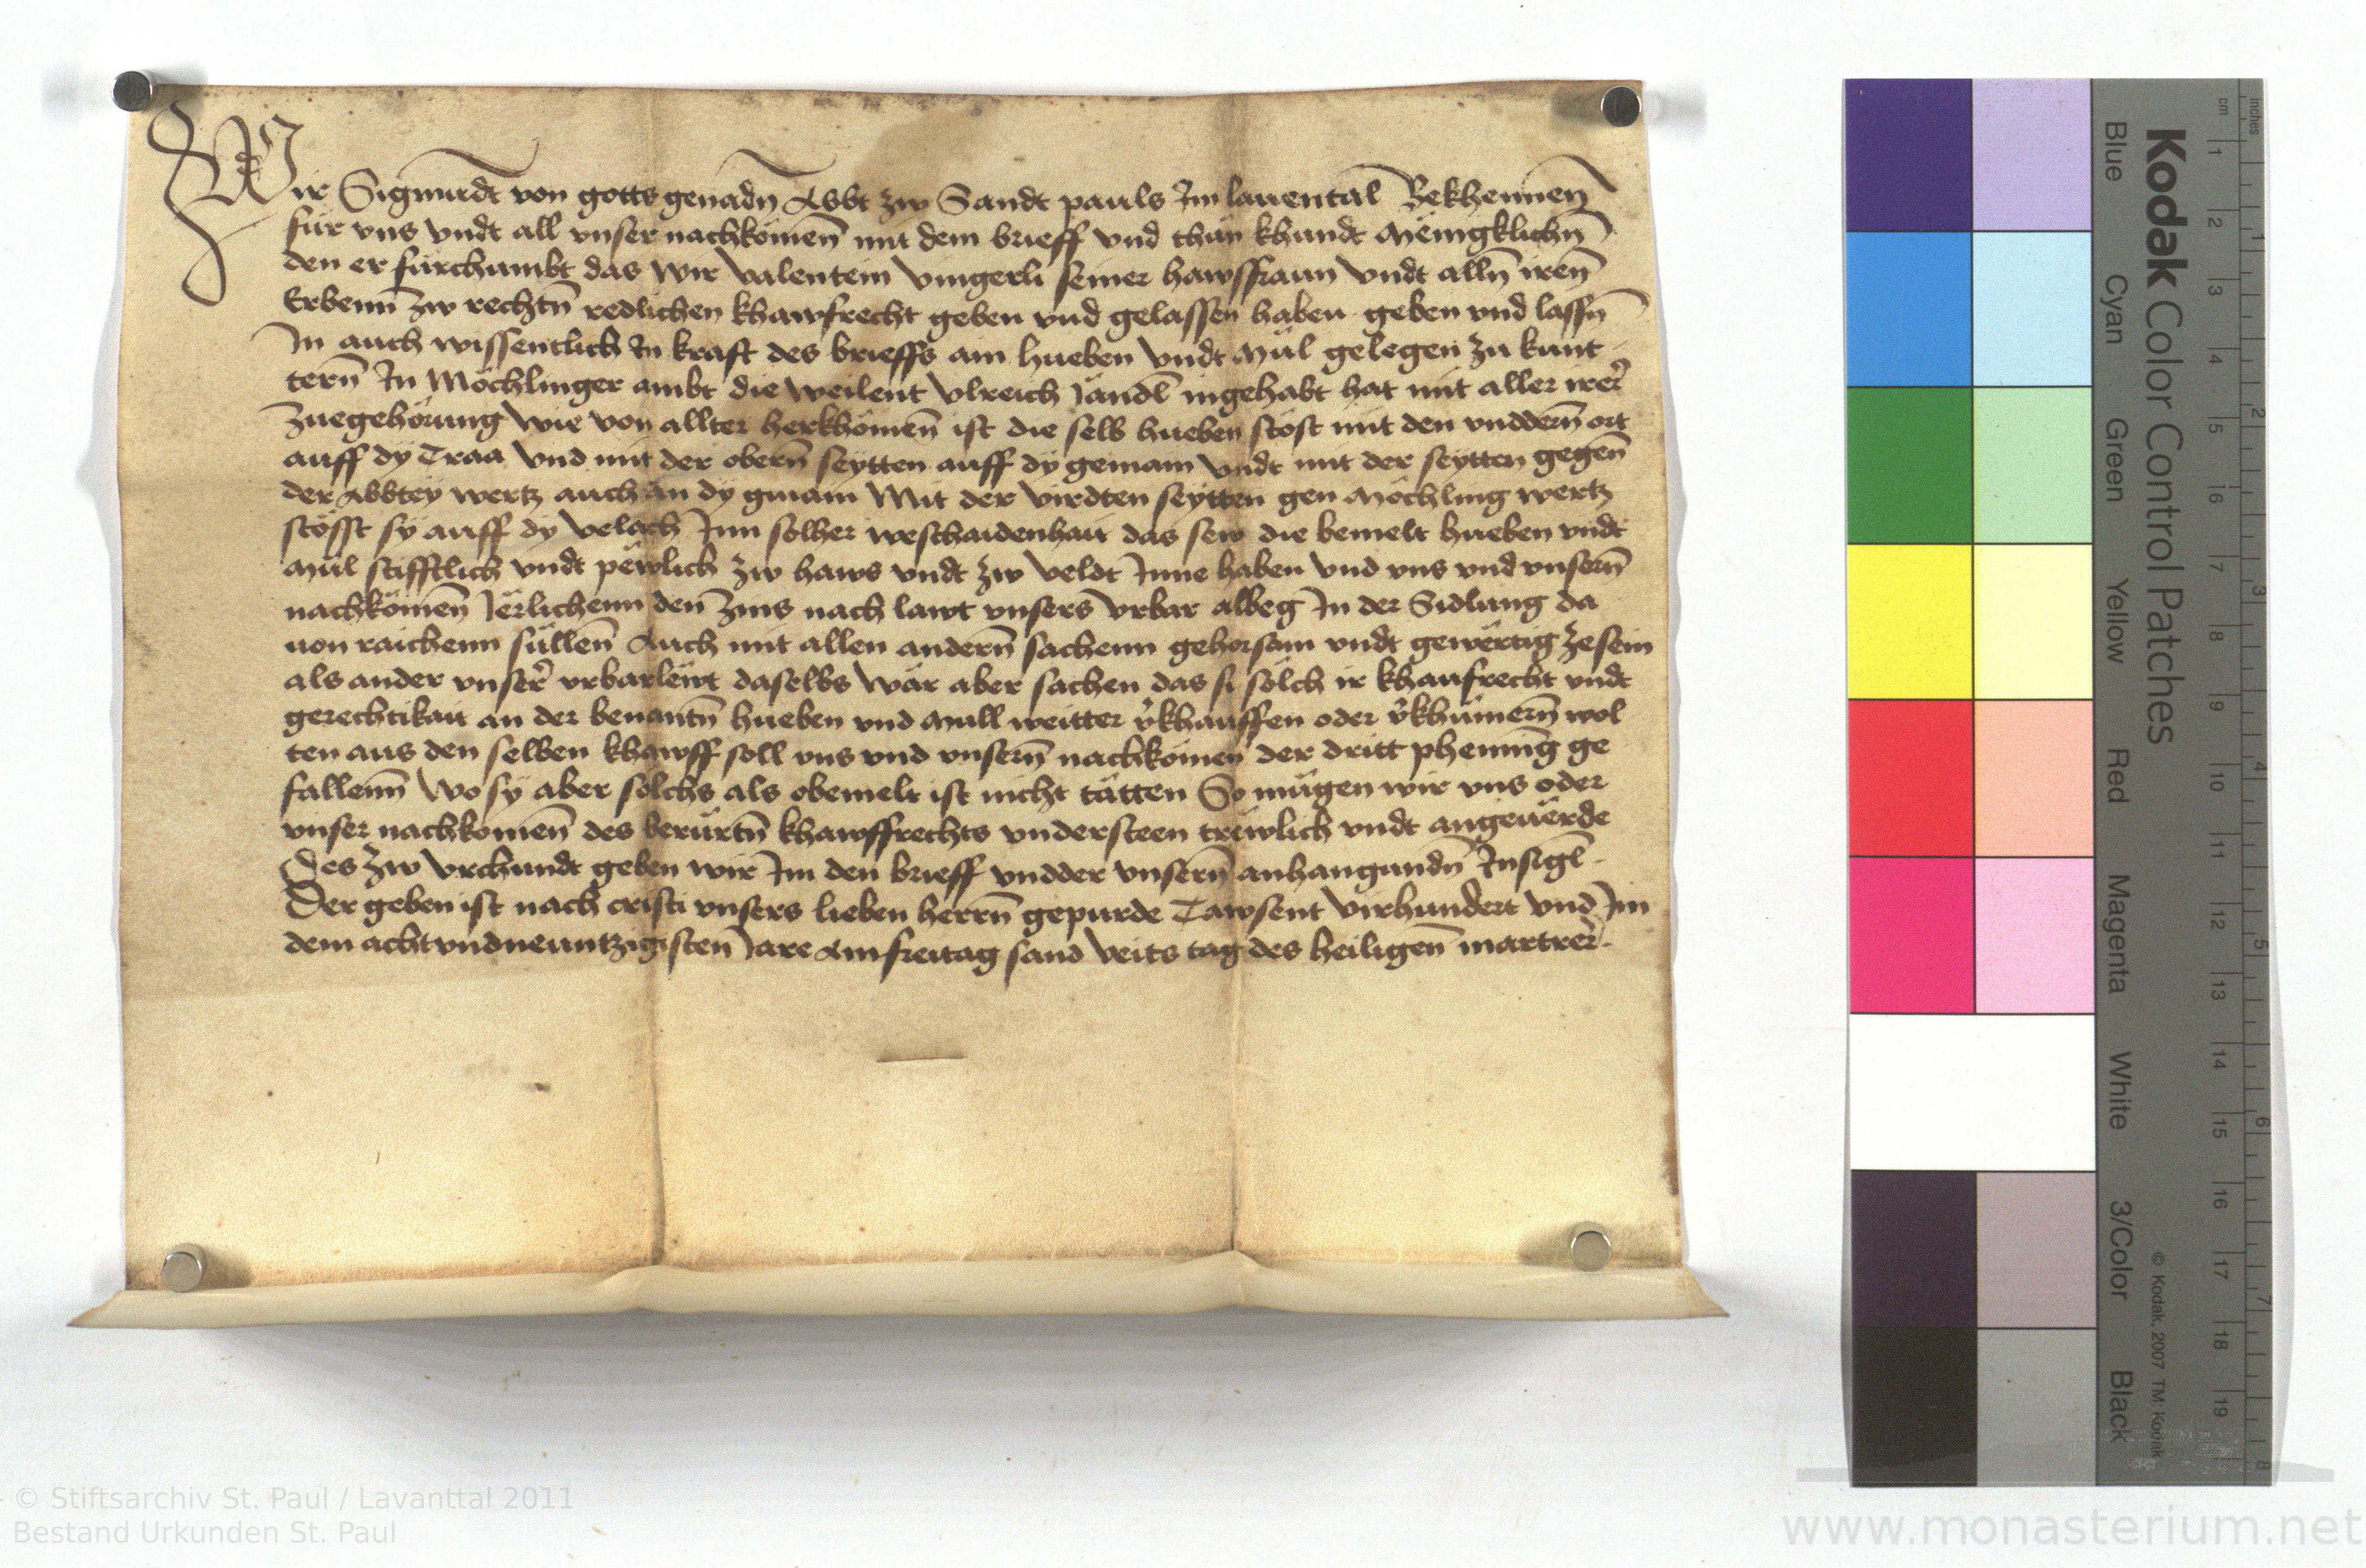 Wir Sigmundt von gotts genadn̄ Abbt zw Sandt pauls Im lauental Bekhennen̄
für vns vndt all vnser nachkömen̄ mit dem brieff vnd thün khundt Menigklichn̄
den er fürchumbt das wir Valentein Vingerli seiner hawsfraun vndt alln̄ iren̄
Erbenn̄ zw rechtn̄ redlichen khawfrecht geben vnd gelassen haben geben vnd lassn̄
In auch wissentlich In kraft des brieffs ain hueben vndt Mül gelegen zu kunt
tern̄ In Möchlinger ambt die weilent Vlreich Jandl ingehabt hat mit aller irer
Zuegehörung wie von allter herkhömen̄ ist die selb hueben stöst mit den vnddern̄ ort
auff dÿ Traa vnd mit der obern̄ seÿtten auff dÿ gemain vndt mit der seÿtten gegen̄
der Abbteÿ wertz auch an dÿ gmain Mit der virdten seÿtten gen Möchling wertz
stösst sÿ auff dÿ velach Inn solher weschaidenhait das sew die bemelt hueben vndt
Mül stifftlich vndt pëwlich zw haws vndt zw veldt Inne haben vnd vns vnd vnsern̄
nachkömen̄ Jërlichenn den̄ zins nach lawt vnsers vrbar albeg In der Sidlung da
uon raichenn süllen̄ Auch mit allen andern̄ sachenn gehorsam vndt gewërtig zesein
als ander vnser vrbarlëwt daselbs wär aber sachen das si sölch ir khaufrecht vndt
gerechtikait an der benantn̄ hueben vnd Mull weitter v̓khauffen oder v̓khümern̄ wol
ten aus den selben khawff soll vns vnd vnsern̄ nachkömen der dritt phenning ge
fallenn̄ Wo sÿ aber sölchs als obemelt ist nicht tätten So mügen wir vns oder
vnser nachkomen̄ des berürtn̄ khawffrechts vndersteen trëwlich vndt angeuërde
Des zw vrchundt geben wir Im den brieff vndder vnsern̄ anhangundn̄ Insigl
Der geben ist nach cristi vnsers lieben herrn̄ gepurde Tawsent virhundert vnd Im
dem achtvndneuntzigisten Jare Am freitag sand Veits tag des heiligen̄ martrer
Kodak Color Control Patches
Blue Cyan Green Yellow Red Magenta White 3/Color Black
© Kodak, 2007 TM: Kodak
cm 1 2 3 4 5 6 7 8 9 10 11 12 13 14 15 16 17 18 19
inches 1 2 3 4 5 6 7 8
© Stiftsarchiv St. Paul / Lavanttal 2011
Bestand Urkunden St. Paul
www.monasterium.net